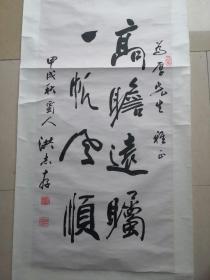 为厚先生 雅正
高瞻遠矚
一帆風順
甲戌秋雪人
洪志存